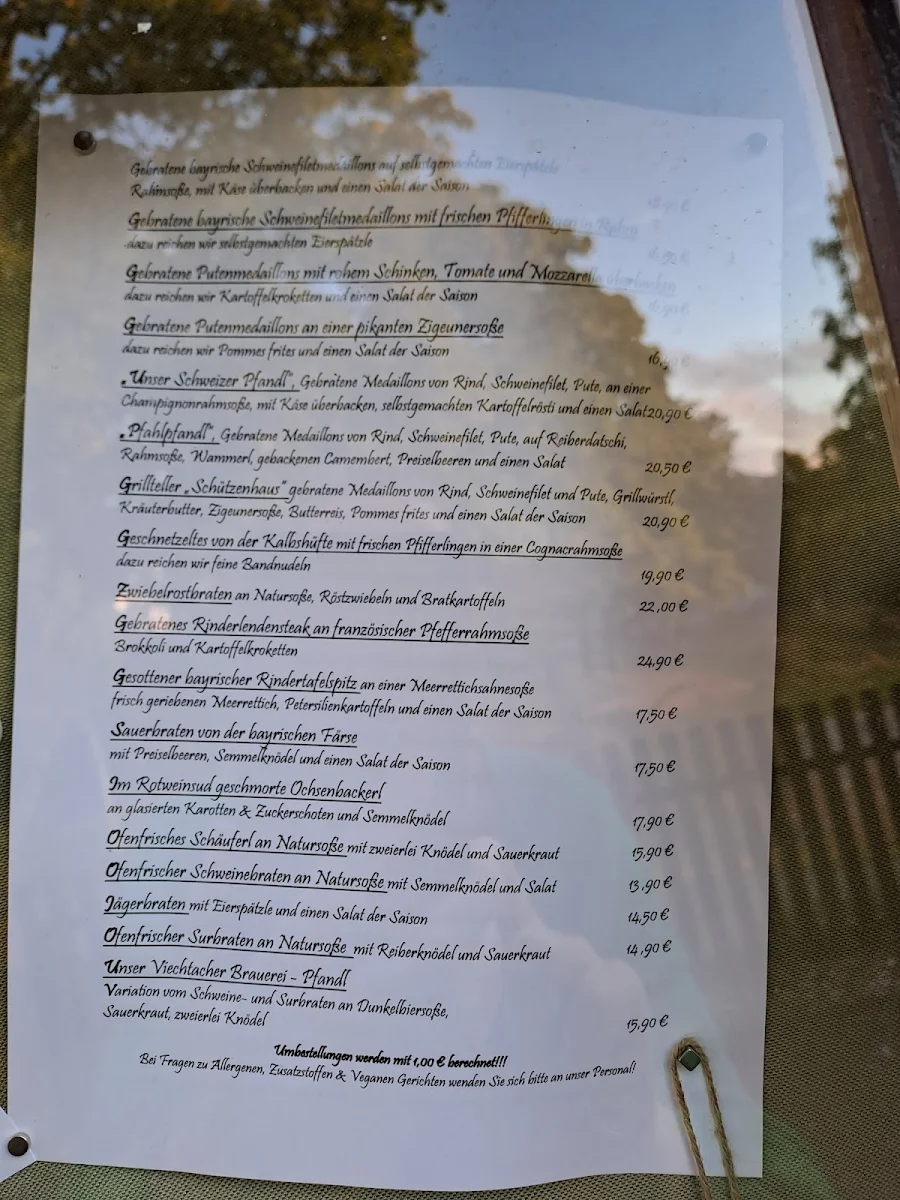 Gebratene bayrische Schweinefiletmedaillons auf selbstgemachten Eierspätzle
Rahmsoße, mit Käse überbacken und einen Salat der Saison
Gebratene bayrische Schweinefiletmedaillons mit frischen Pfifferlingen in Rahm
dazu reichen wir selbstgemachten Eierspätzle
Gebratene Putenmedaillons mit rohem Schinken, Tomate und Mozzarella überbacken
dazu reichen wir Kartoffelkroketten und einen Salat der Saison
Gebratene Putenmedaillons an einer pikanten Zigeunersoße
dazu reichen wir Pommes frites und einen Salat der Saison
„Unser Schweizer Pfandl", Gebratene Medaillons von Rind, Schweinefilet, Pute, an einer
Champignonrahmsoße, mit Käse überbacken, selbstgemachten Kartoffelrösti und einen Salat20,90 €
„Pfahlpfandl", Gebratene Medaillons von Rind, Schweinefilet, Pute, auf Reiberdatschi,
Rahmsoße, Wammerl, gebackenen Camembert, Preiselbeeren und einen Salat 20,50 €
Grillteller „Schützenhaus" gebratene Medaillons von Rind, Schweinefilet und Pute, Grillwürstl,
Kräuterbutter, Zigeunersoße, Butterreis, Pommes frites und einen Salat der Saison 20,90 €
Geschnetzeltes von der Kalbshüfte mit frischen Pfifferlingen in einer Cognacrahmsoße
dazu reichen wir feine Bandnudeln 19,90 €
Zwiebelrostbraten an Natursoße, Röstzwiebeln und Bratkartoffeln 22,00 €
Gebratenes Rinderlendensteak an französischer Pfefferrahmsoße
Brokkoli und Kartoffelkroketten 24,90 €
Gesottener bayrischer Rindertafelspitz an einer Meerrettichsahnesoße
frisch geriebenen Meerrettich, Petersilienkartoffeln und einen Salat der Saison 17,50 €
Sauerbraten von der bayrischen Färse
mit Preiselbeeren, Semmelknödel und einen Salat der Saison 17,50 €
Im Rotweinsud geschmorte Ochsenbackerl
an glasierten Karotten & Zuckerschoten und Semmelknödel 17,90 €
Ofenfrisches Schäuferl an Natursoße mit zweierlei Knödel und Sauerkraut 15,90 €
Ofenfrischer Schweinebraten an Natursoße mit Semmelknödel und Salat 13,90 €
Jägerbraten mit Eierspätzle und einen Salat der Saison 14,50 €
Ofenfrischer Surbraten an Natursoße mit Reiberknödel und Sauerkraut 14,90 €
Unser Viechtacher Brauerei - Pfandl
Variation vom Schweine- und Surbraten an Dunkelbiersoße,
Sauerkraut, zweierlei Knödel 15,90 €
Umbestellungen werden mit 1,00 € berechnet!!!
Bei Fragen zu Allergenen, Zusatzstoffen & Veganen Gerichten wenden Sie sich bitte an unser Personal!